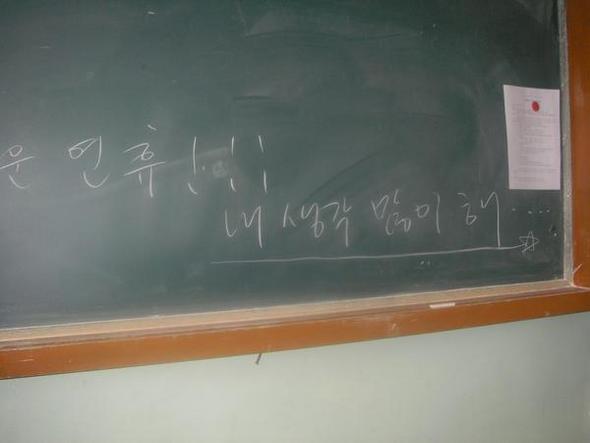 운 연휴!!!
내 생각 많이 해.....☆